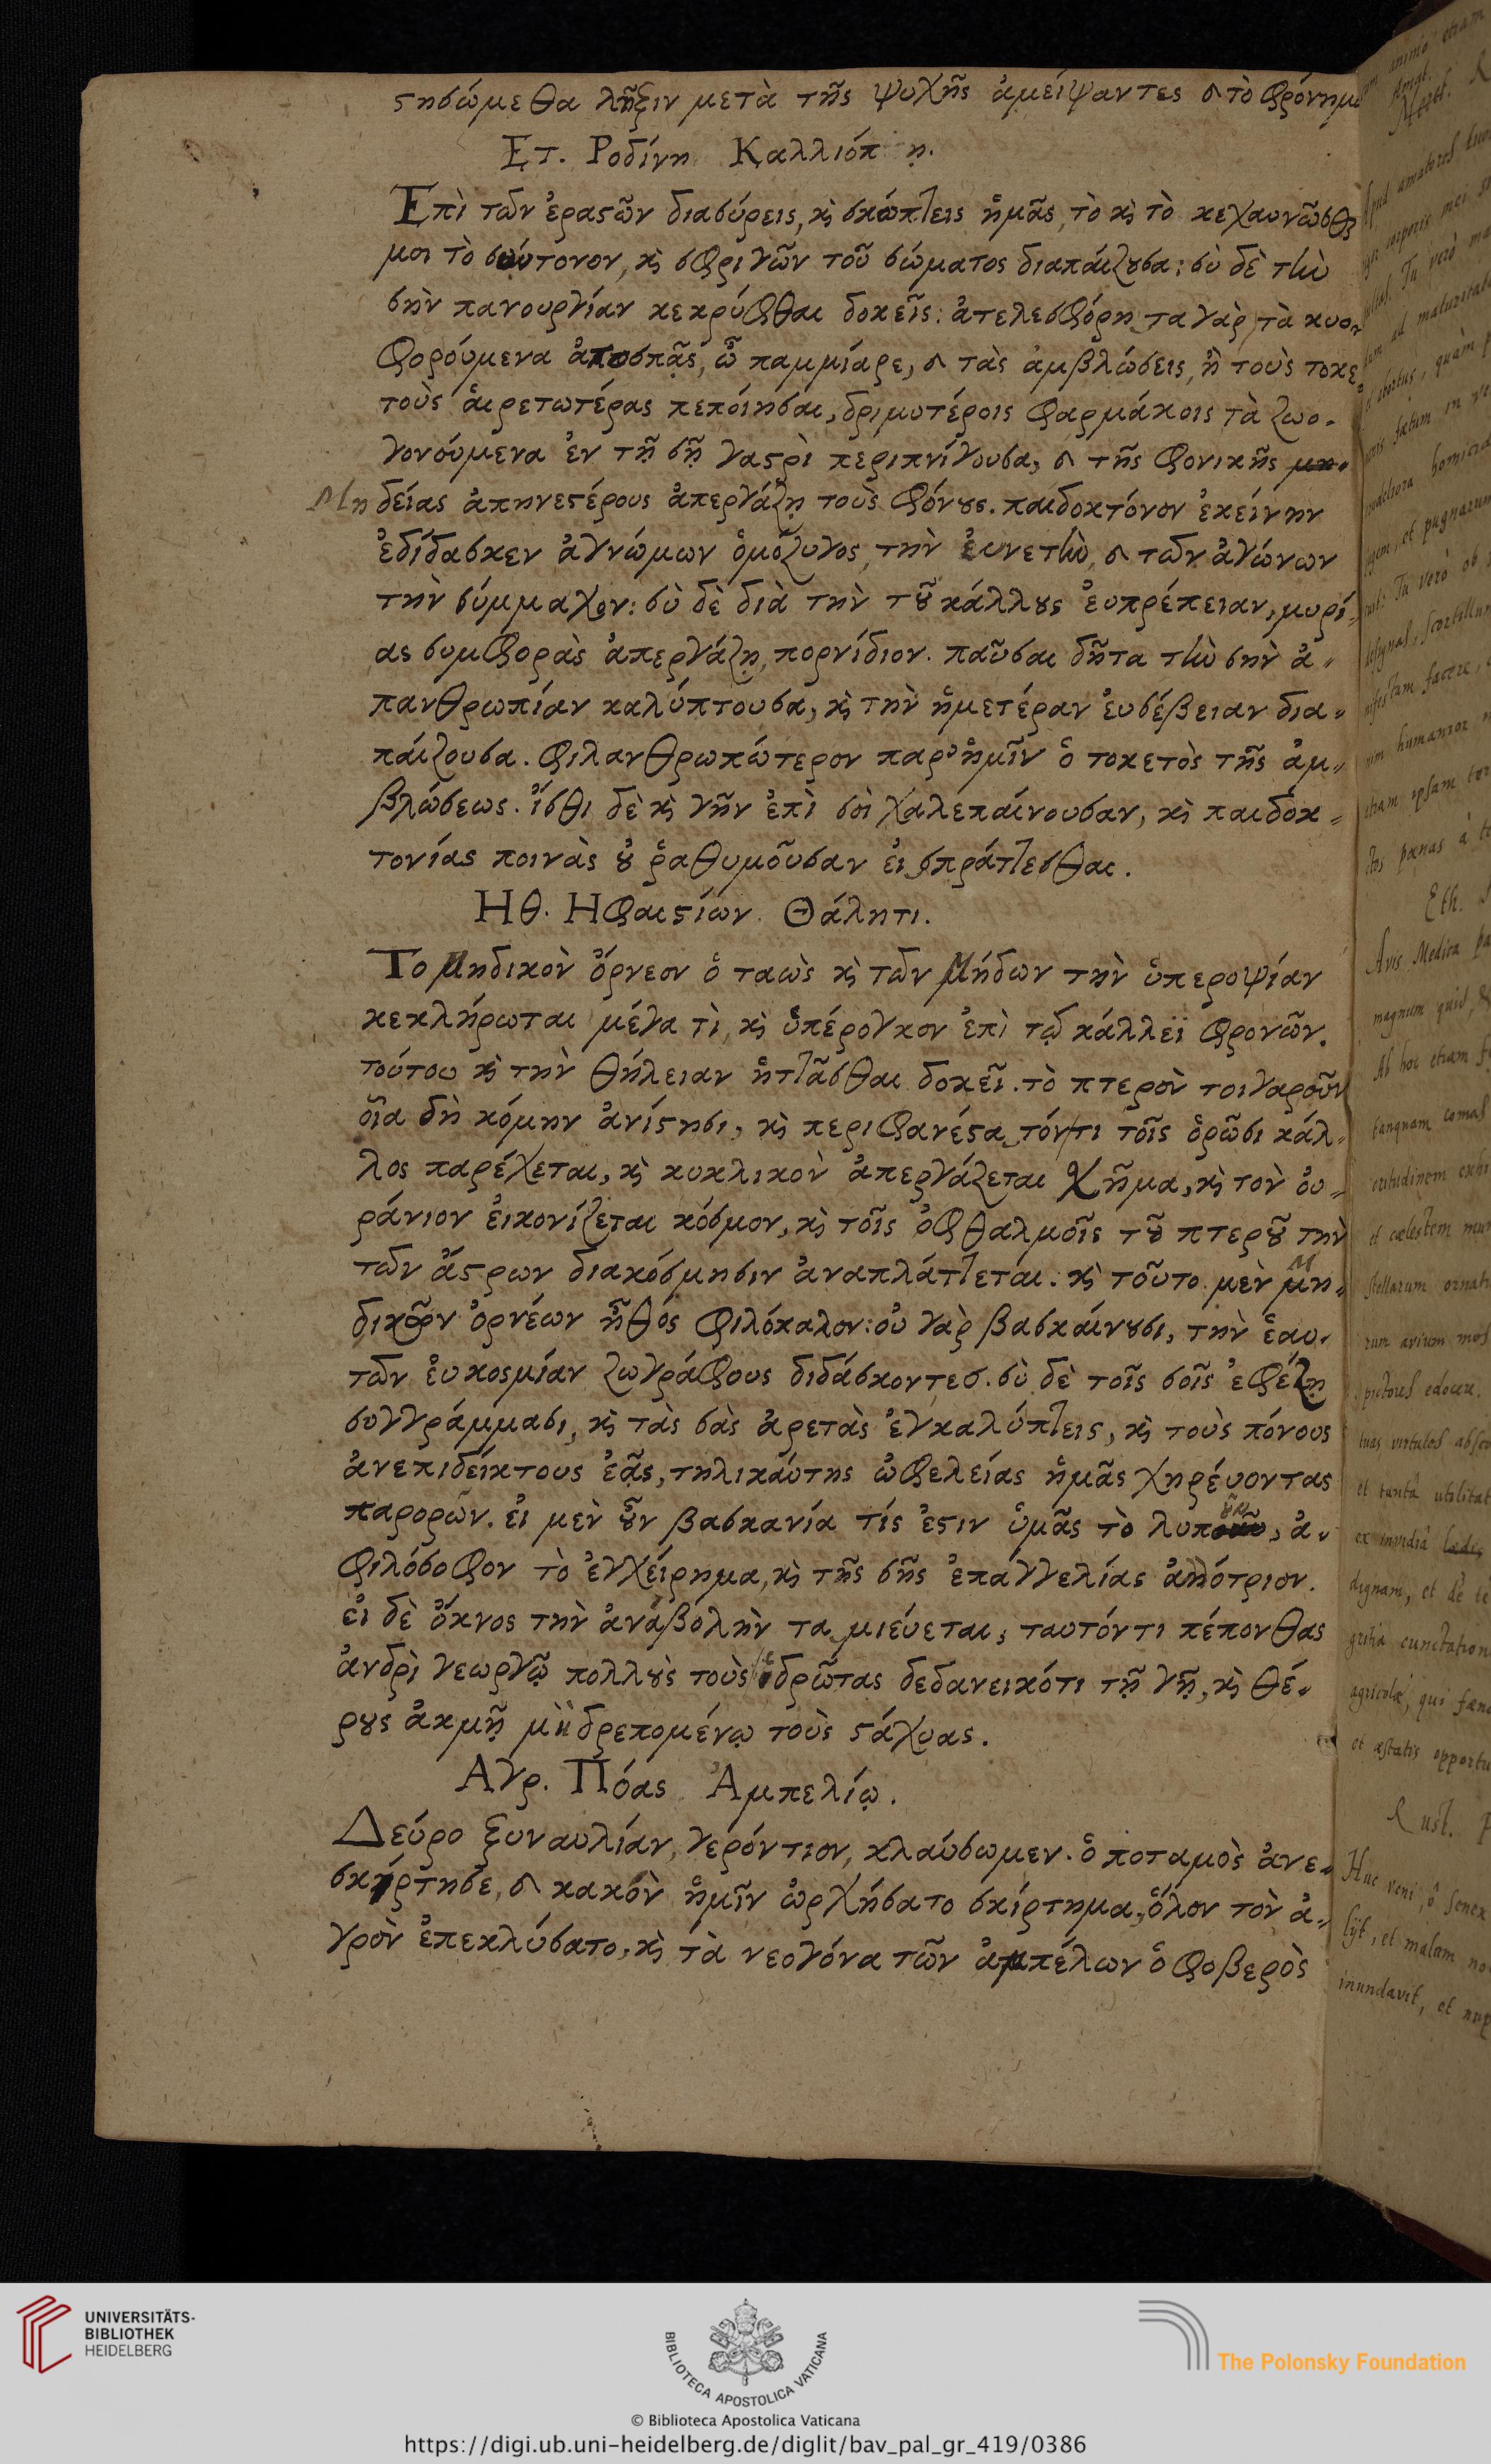 στησώμεθα λῆξιν μετὰ τῆς ψυχῆς ἀμείψαντες καὶ τὸ φρόνημα
Ετ. Ροδίνη Καλλιόπῃ.
Ἐπὶ τῶν ἐραστῶν διασύρεις, καὶ σκώπτεις ἡμᾶς, τὸ καὶ τὸ κεχαυνῶσθαι
μοι τὸ σύντονον, καὶ σφριγῶν τοῦ σώματος διαπαίζουσα: σὺ δὲ τὴν
σὴν πανουργίαν κεκρύφθαι δοκεῖς: ἀτελεσφόρητα γὰρ τὰ κυο
φορούμενα ἀποσπᾷς, ὦ παμμίαρε, καὶ τὰς ἀμβλώσεις, ἢ τοὺς τοκε
τοὺς αἱρετωτέρας πεποίησαι, δριμυτέροις φαρμάκοις τὰ ζωο-
γονούμενα ἐν τῇ σῇ γαστρὶ περιπνίγουσα, καὶ τῆς φονικῆς
Μηδείας ἀπηνεστέρους ἀπεργάζῃ τοὺς φόνους. παιδοκτόνον ἐκείνην
ἐδίδασκεν ἀγνώμων ὁμόζυγος, τὴν εὐνετὴν, καὶ τῶν ἀγώνων
τὴν σύμμαχον: σὺ δὲ διὰ τὴν τοῦ κάλλους εὐπρέπειαν, μυρί-
ας συμφορὰς ἀπεργάζῃ, πορνίδιον. παῦσαι δῆτα τὴν σὴν ἀ-
πανθρωπίαν καλύπτουσα, καὶ τὴν ἡμετέραν εὐσέβειαν δια-
παίζουσα. φιλανθρωπώτερον παρ' ἡμῖν ὁ τοκετὸς τῆς ἀμ-
βλώσεως. ἴσθι δὲ καὶ γῆν ἐπὶ σοὶ χαλεπαίνουσαν, καὶ παιδοκ-
τονίας ποινὰς οὐ ῥαθυμοῦσαν εἰσπράττεσθαι.
Ηθ. Ηφαιστίων Θάλητι.
Το Μηδικὸν ὄρνεον ὁ ταὼς καὶ τῶν Μήδων τὴν ὑπεροψίαν
κεκλήρωται μέγα τὶ, καὶ ὑπέρογκον ἐπὶ τῷ κάλλεϊ φρονῶν.
τούτου καὶ τὴν θήλειαν ἡττᾶσθαι δοκεῖ. τὸ πτερὸν τοιγαροῦν
οἷα δὴ κόμην ἀνίστησι, καὶ περιφανέστατόν τι τοῖς ὁρῶσι κάλ-
λος παρέχεται, καὶ κυκλικὸν ἀπεργάζεται χῆμα, καὶ τὸν οὐ-
ράνιον εἰκονίζεται κόσμον, καὶ τοῖς ὀφθαλμοῖς τοῦ πτεροῦ τὴν
τῶν ἄστρων διακόσμησιν ἀναπλάττεται: καὶ τοῦτο μὲν Μη-
δικῶν ὀρνέων ἦθός φιλόκαλον: οὐ γὰρ βασκαίνουσι, τὴν ἑαυ-
τῶν εὐκοσμίαν ζωγράφους διδάσκοντες. σὺ δὲ τοῖς σοῖς ἐφέζῃ
συγγράμμασι, καὶ τὰς σὰς ἀρετὰς ἐγκαλύπτεις, καὶ τοὺς πόνους
ἀνεπιδείκτους ἐᾷς, τηλικαύτης ὠφελείας ἡμᾶς χηρεύοντας
παρορῶν. εἰ μὲν οὖν βασκανία τίς ἐστιν ὑμᾶς τὸ λυποῦν, ἀ-
φιλόσοφον τὸ ἐγχείρημα, καὶ τῆς σῆς ἐπαγγελίας ἀλλότριον.
εἰ δὲ ὄκνος τὴν ἀναβολὴν ταμιεύεται, ταυτόντι πέπονθας
ἀνδρὶ γεωργῷ πολλοὺς τοὺς ἱδρῶτας δεδανεικότι τῇ γῇ, καὶ θέ-
ρους ἀκμῇ μὴ δρεπομένῳ τοὺς στάχυας.
Αγρ. Πόας Ἀμπελίῳ.
Δεύρο ξυναυλίαν, γερόντιον, κλαύσωμεν. ὁ ποταμὸς ἀνε-
σκίρτησε, καὶ κακὸν ἡμῖν ὠρχήσατο σκίρτημα, ὅλον τὸν ἀ-
γρὸν ἐπεκλύσατο, καὶ τὰ νεογόνα τῶν ἀμπέλων ὁ φοβερὸς
Eth.
Avis Medica
magnum quid
Ab hoc etiam
tanquam comas
et cælestem
stellarum ornat
rum avium mos
pictores edocen.
tuas virtutes
et tanta utilitat
ex invidia
dignam, et de te
cunctation
agricolæ, qui
et æstatis opportu
Rust.
Huc veni, ô senex
et malam no
inundavit, et
UNIVERSITÄTS-
BIBLIOTHEK
HEIDELBERG
BIBLIOTECA APOSTOLICA VATICANA
The Polonsky Foundation
© Biblioteca Apostolica Vaticana
https://digi.ub.uni-heidelberg.de/diglit/bav_pal_gr_419/0386